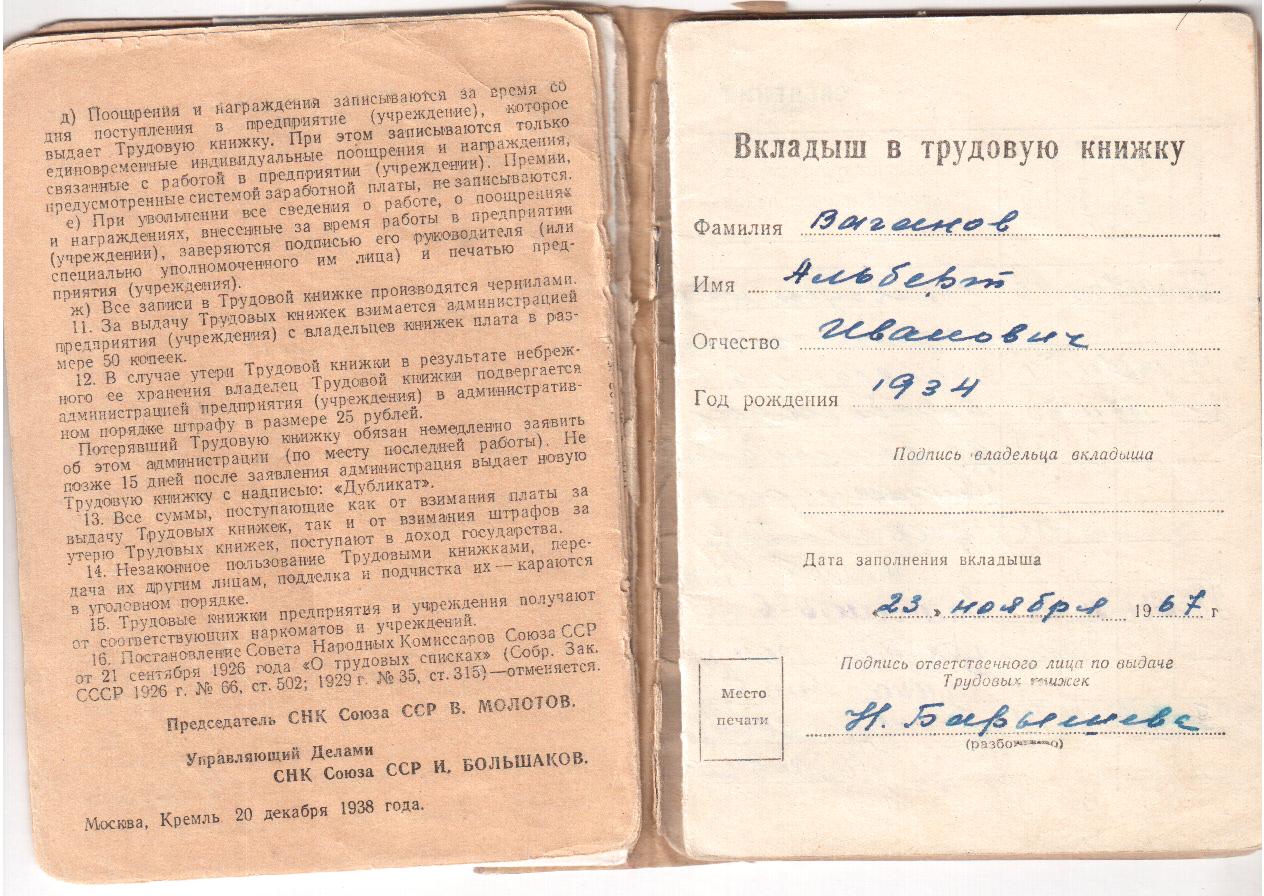 д) Поощрения и награждения записываются за время со
дня поступления в предприятие (учреждение), которое
выдает Трудовую книжку. При этом записываются только
единовременные индивидуальные поощрения и награждения,
связанные с работой в предприятии (учреждении). Премии,
предусмотренные системой заработной платы, не записываются.
е) При увольнении все сведения о работе, о поощрениях
и награждениях, внесенные за время работы в предприятии
(учреждении), заверяются подписью его руководителя (или
специально уполномоченного им лица) и печатью пред-
приятия (учреждения).
ж) Все записи в Трудовой книжке производятся чернилами.
11. За выдачу Трудовых книжек взимается администрацией
предприятия (учреждения) с владельцев книжек плата в раз-
мере 50 копеек.
12. В случае утери Трудовой книжки в результате небреж-
ного ее хранения владелец Трудовой книжки подвергается
администрацией предприятия (учреждения) в административ-
ном порядке штрафу в размере 25 рублей.
Потерявший Трудовую книжку обязан немедленно заявить
об этом администрации (по месту последней работы). Не
позже 15 дней после заявления администрация выдает новую
Трудовую книжку с надписью: «Дубликат».
13. Все суммы, поступающие как от взимания платы за
выдачу Трудовых книжек, так и от взимания штрафов за
утерю Трудовых книжек, поступают в доход государства.
14. Незаконное пользование Трудовыми книжками, пере-
дача их другим лицам, подделка и подчистка их — караются
в уголовном порядке.
15. Трудовые книжки предприятия и учреждения получают
от соответствующих наркоматов и учреждений.
16. Постановление Совета Народных Комиссаров Союза ССР
от 21 сентября 1926 года «О трудовых списках» (Собр. Зак.
СССР 1926 г. № 66, ст. 502; 1929 г. № 35, ст. 315)—отменяется.
Председатель СНК Союза ССР В. МОЛОТОВ.
Управляющий Делами
СНК Союза ССР И. БОЛЬШАКОВ.
Москва, Кремль 20 декабря 1938 года.
Вкладыш в трудовую книжку
Фамилия Ваганов
Имя Альберт
Отчество Иванович
Год рождения 1934
Подпись владельца вкладыша
Дата заполнения вкладыша
«23» ноября 1967 г
Подпись ответственного лица по выдаче
Трудовых книжек
Место
печати
Н. Барышева
(разборчиво)